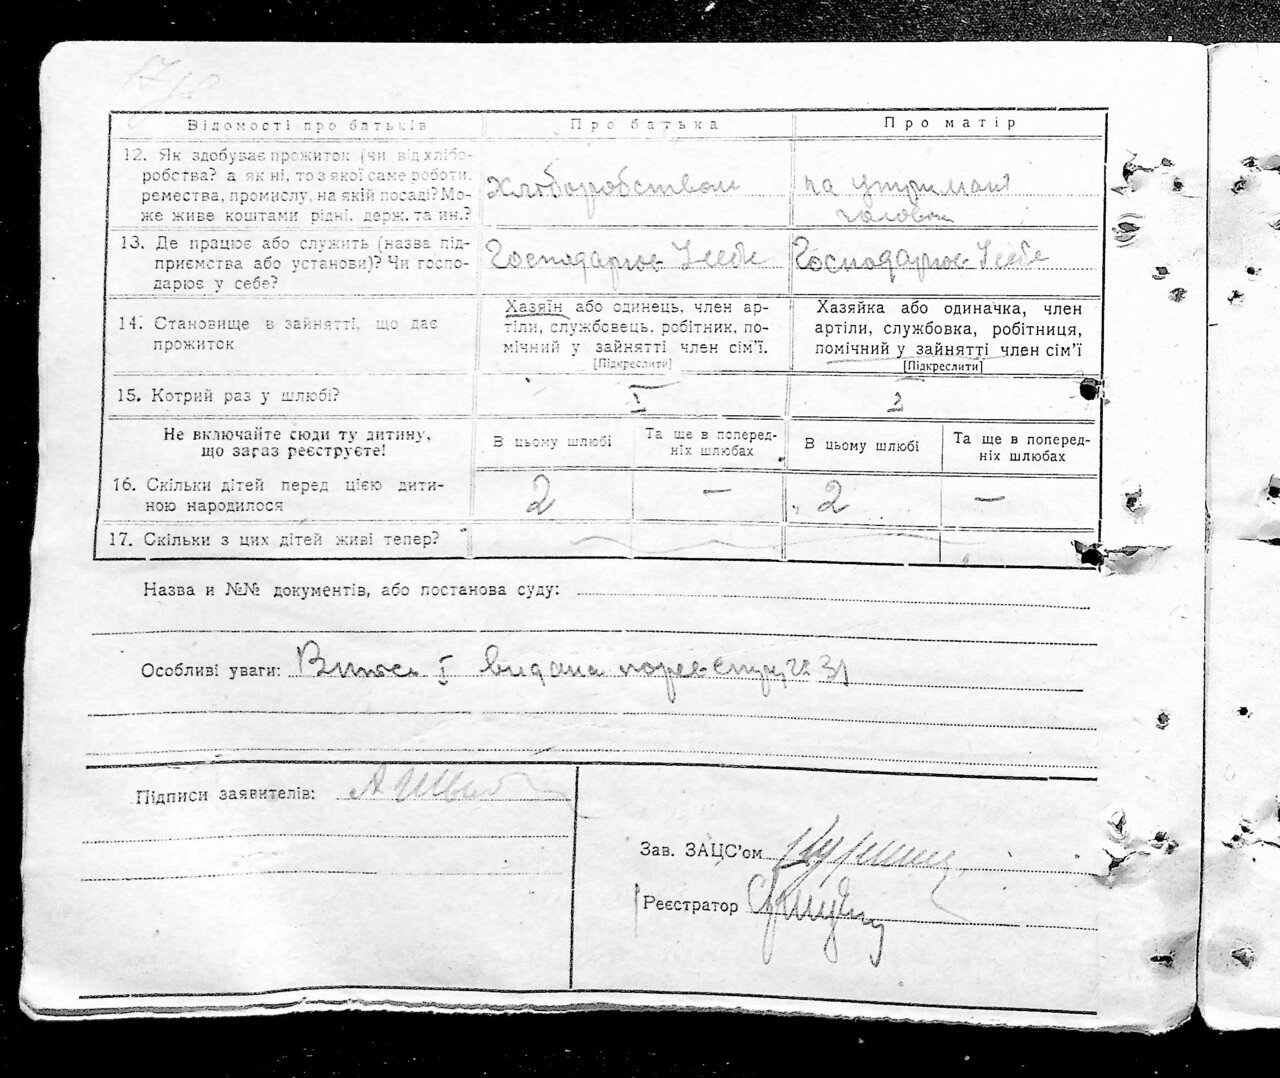 Відомості про батьків Про батька Про матір
12. Як здобуває прожиток (чи від хлібо-
робства? а як ні, то з якої саме роботи,
ремества, промислу, на якій посаді? Мо-
же живе коштами рідні, держ. та ин.?
Хлоборобством
на утримані
чоловіка
13. Де працює або служить (назва під-
приємства або установи)? Чи госпо-
дарює у себе?
Господарює У себе
Господарює У себе
14. Становище в зайнятті, що дає
прожиток
Хазяїн або одинець, член ар-
тіли, службовець, робітник, по-
мічний у зайнятті член сім'ї.
[Підкреслити]
Хазяйка або одиначка, член
артіли, службовка, робітниця,
помічний у зайнятті член сім'ї
[Підкреслити]
15. Котрий раз у шлюбі?
I
Не включайте сюди ту дитину,
що загаз реєструєте!
В цьому шлюбі
Та ще в поперед-
ніх шлюбах
В цьому шлюбі
Та ще в поперед-
ніх шлюбах
16. Скільки дітей перед цією дити-
ною народилося
2 — 2 —
17. Скільки з цих дітей живі тепер?
Назва и №№ документів, або постанова суду:
Особливі уваги: Випись I видана по реєстру № 31
Підписи заявителів:
Зав. ЗАЦС'ом
Реєстратор